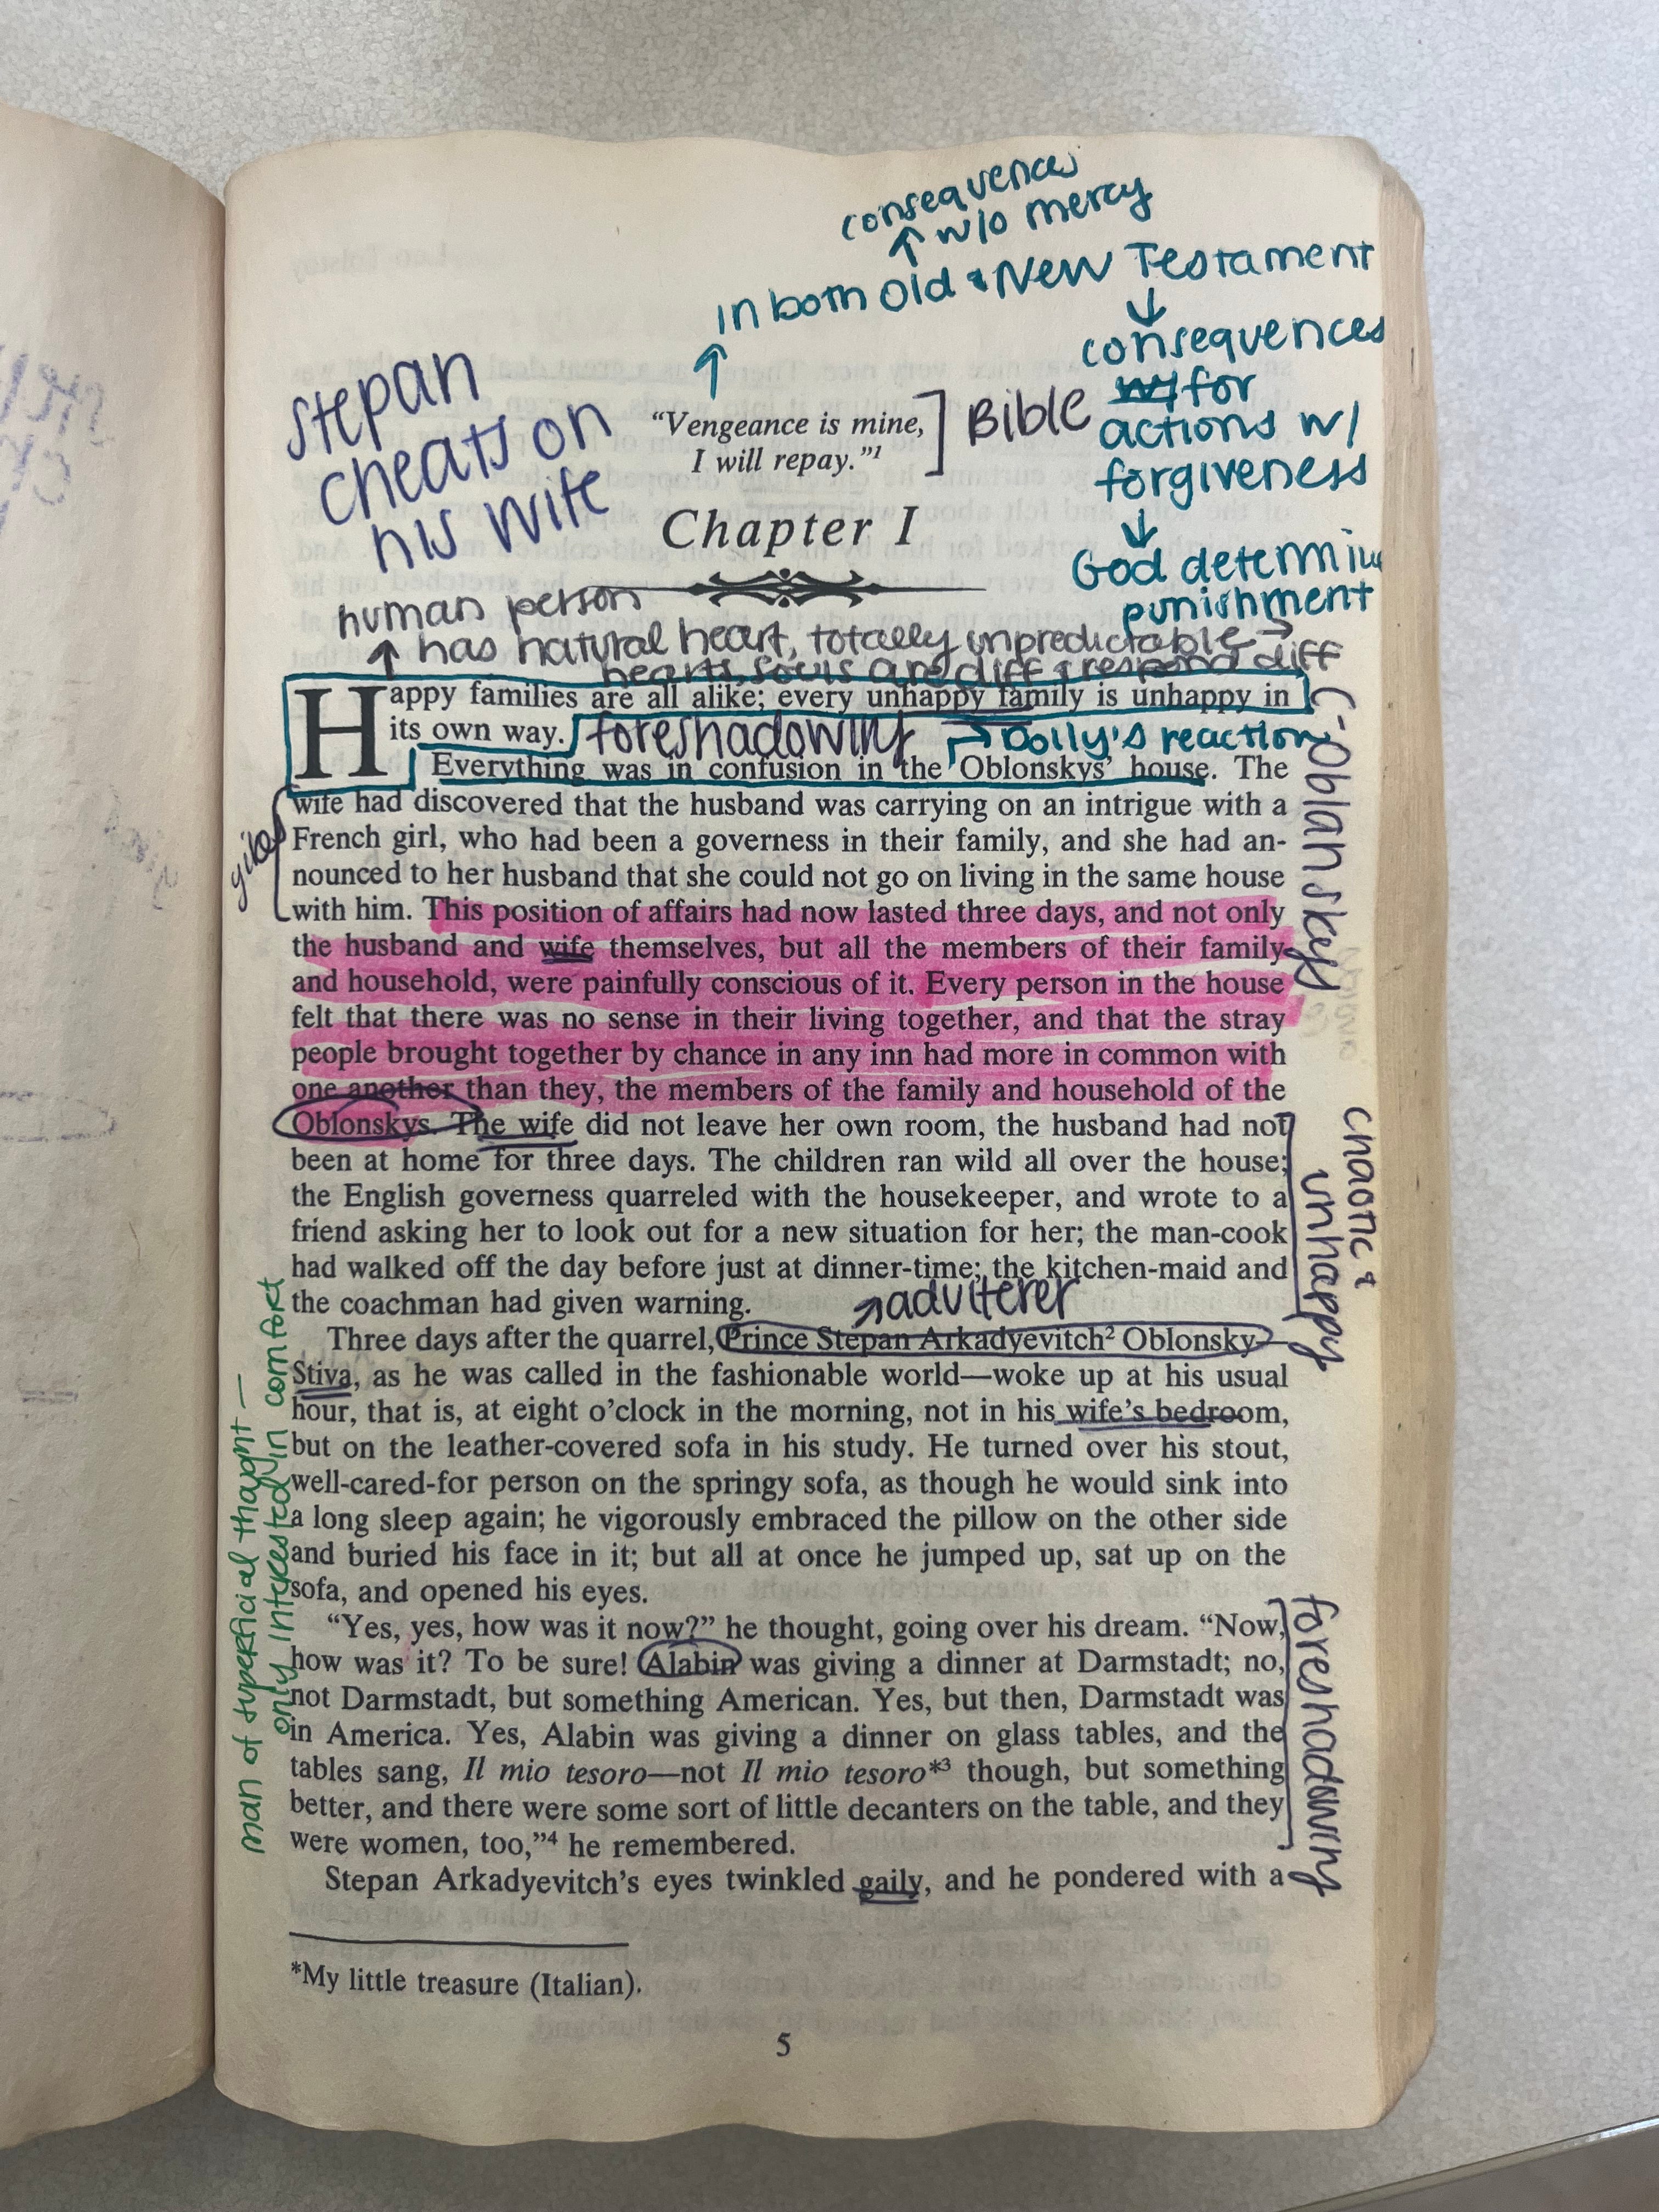 consequences
w/o mercy
↑
in both Old & New Testament
↑
↓
consequences
for
actions w/
forgiveness
↓
God determin
punishment
stepan
cheats on
his wife
“Vengeance is mine,
I will repay.”1
Bible
Chapter I
human person
↑ has natural heart, totally unpredictable →
hearts, souls are diff & respond diff
Happy families are all alike; every unhappy family is unhappy in
its own way. foreshadowing → Dolly's reaction
Everything was in confusion in the Oblonskys’ house. The
wife had discovered that the husband was carrying on an intrigue with a
French girl, who had been a governess in their family, and she had an-
nounced to her husband that she could not go on living in the same house
with him. This position of affairs had now lasted three days, and not only
the husband and wife themselves, but all the members of their family
and household, were painfully conscious of it. Every person in the house
felt that there was no sense in their living together, and that the stray
people brought together by chance in any inn had more in common with
one another than they, the members of the family and household of the
Oblonskys. The wife did not leave her own room, the husband had not
been at home for three days. The children ran wild all over the house;
the English governess quarreled with the housekeeper, and wrote to a
friend asking her to look out for a new situation for her; the man-cook
had walked off the day before just at dinner-time; the kitchen-maid and
the coachman had given warning.
→ adulterer
Three days after the quarrel, Prince Stepan Arkadyevitch2 Oblonsky—
Stiva, as he was called in the fashionable world—woke up at his usual
hour, that is, at eight o’clock in the morning, not in his wife’s bedroom,
but on the leather-covered sofa in his study. He turned over his stout,
well-cared-for person on the springy sofa, as though he would sink into
a long sleep again; he vigorously embraced the pillow on the other side
and buried his face in it; but all at once he jumped up, sat up on the
sofa, and opened his eyes.
“Yes, yes, how was it now?” he thought, going over his dream. “Now,
how was it? To be sure! Alabin was giving a dinner at Darmstadt; no,
not Darmstadt, but something American. Yes, but then, Darmstadt was
in America. Yes, Alabin was giving a dinner on glass tables, and the
tables sang, Il mio tesoro—not Il mio tesoro*3 though, but something
better, and there were some sort of little decanters on the table, and they
were women, too,”4 he remembered.
Stepan Arkadyevitch’s eyes twinkled gaily, and he pondered with a
*My little treasure (Italian).
5
Oblanskys
chaotic &
unhappy
foreshadowing
man of superficial thought —
only interested in comfort